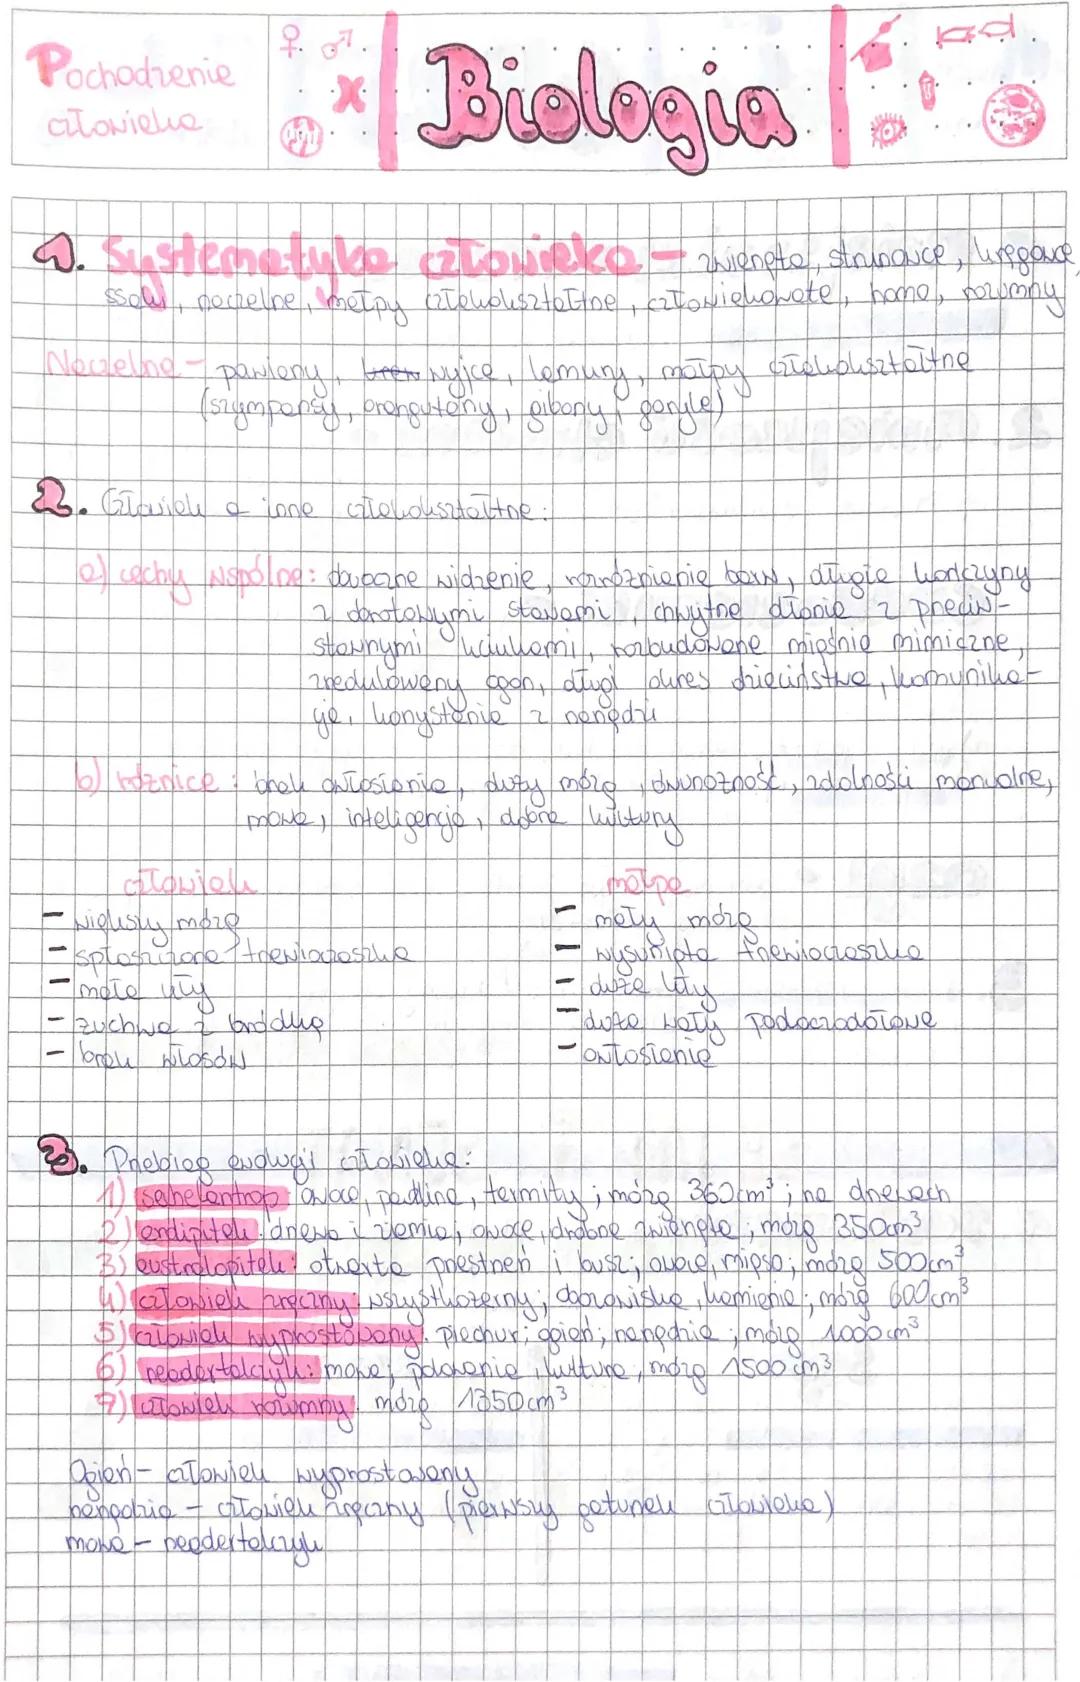 Pochodzenie
człowieka
Biologia
1. Systematyka człowieka - zwierzęta, strunowce, kręgowce,
ssaki, naczelne, małpy człekokształtne, człowiekowate, homo, rozumny
Naczelne - pawiany, wyjce, lemury, małpy człekokształtne
(szympansy, orangutany, gibony, goryle)
2. Człowiek a inne człekokształtne:
a) cechy wspólne: dwuoczne widzenie, rozróżnianie barw, długie kończyny
z obrotowymi stawami, chwytne dłonie z przeciw-
stawnymi kciukami, rozbudowane mięśnie mimiczne,
zredukowany ogon, długi okres dzieciństwa, komunika-
cje, korzystanie z narzędzi
b) różnice: brak owłosienia, duży mózg, dwunożność, zdolności manualne,
mowa, inteligencja, dobra kultury
człowiek
małpa
- większy mózg
- mały mózg
- spłaszczona trzewioczaszka
- wysunięta trzewioczaszka
- małe kły
- duże kły
- żuchwa z bródką
- duże wały podoczodołowe
- brak włosów
- owłosienie
3. Przebieg ewolucji człowieka:
1) sahelantrop: owoce, padlina, termity; mózg 360cm³; na drzewach
2) ardipitek: drzewa i ziemia; owoce, drobne zwierzęta; mózg 350cm³
3) australopitek: otwarta przestrzeń i busz; owoce, mięso; mózg 500cm³
4) człowiek zręczny: wszystkożerny; obozowiska, kamienie; mózg 600cm³
5) człowiek wyprostowany: piechur; ogień; narzędzia; mózg 1000cm³
6) neandertalczyk: mowa; polowania, kultura; mózg 1500cm³
7) człowiek rozumny: mózg 1350cm³
Ogień - człowiek wyprostowany
narzędzia - człowiek zręczny (pierwszy gatunek człowieka)
mowa - neadertalczyk